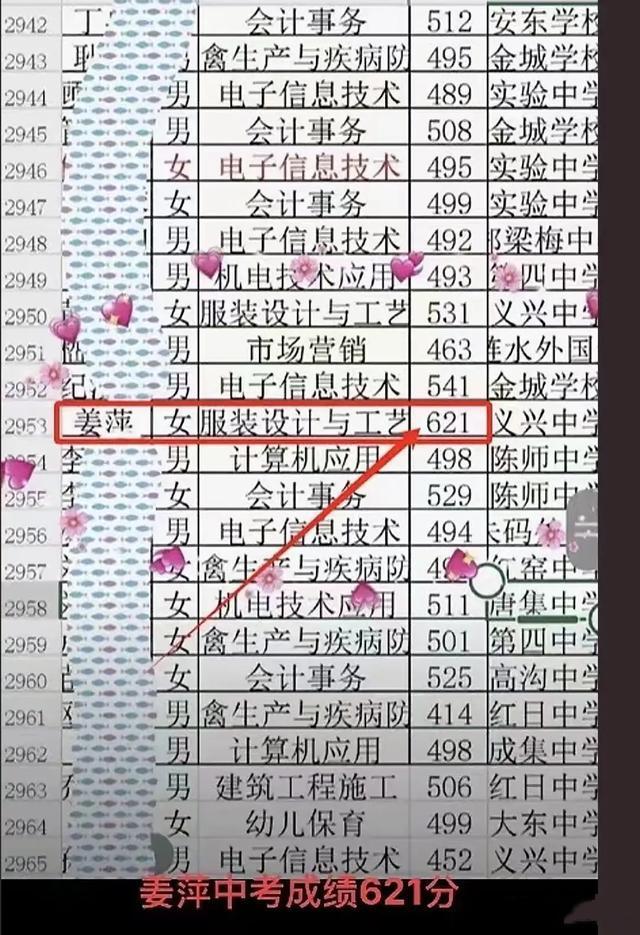 2942 丁 会计事务 512 安东学校
2943 男 禽生产与疾病防 495 金城学校
2944 男 电子信息技术 489 实验中学
2945 男 会计事务 508 金城学校
2946 女 电子信息技术 495 实验中学
2947 女 会计事务 499 实验中学
2948 男 电子信息技术 492 郑梁梅中
2949 男 机电技术应用 493 第四中学
2950 女 服装设计与工艺 531 义兴中学
2951 男 市场营销 463 涟水外国
2952 纪 男 电子信息技术 541 金城学校
2953 姜萍 女 服装设计与工艺 621 义兴中学
2954 李 男 计算机应用 498 陈师中学
2955 李 女 会计事务 529 陈师中学
2956 男 电子信息技术 494
2957 女 禽生产与疾病防 窑中学
2958 女 机电技术应用 511 唐集中学
2959 女 禽生产与疾病防 501 第四中学
2960 女 会计事务 525 高沟中学
2961 男 禽生产与疾病防 414 红日中学
2962 男 计算机应用 498 成集中学
2963 男 建筑工程施工 506 红日中学
2964 女 幼儿保育 499 大东中学
2965 男 电子信息技术 452 义兴中学
姜萍中考成绩621分